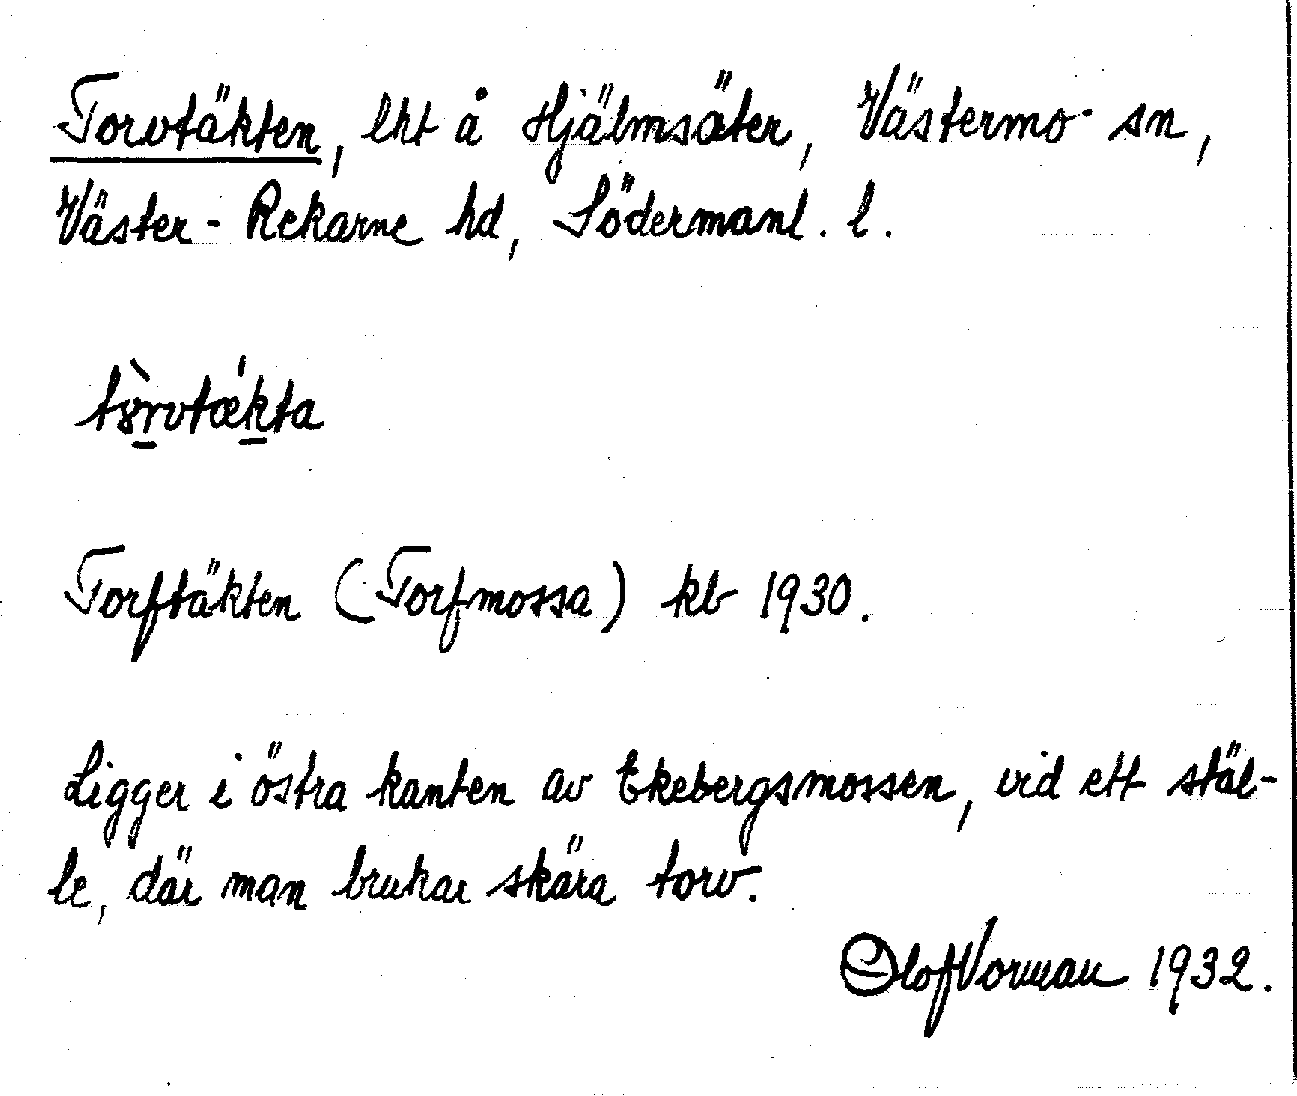 Torvtäkten, lht å Hjälmsäter, Västermo sn,
Väster-Rekarne hd, Södermanl. l.
tòrvtǽkta
Torftäkten (Torfmossa) kb 1930.
Ligger i östra kanten av Ekebergsmossen, vid ett stäl-
le, där man brukar skära torv.
Olof Vorman 1932.